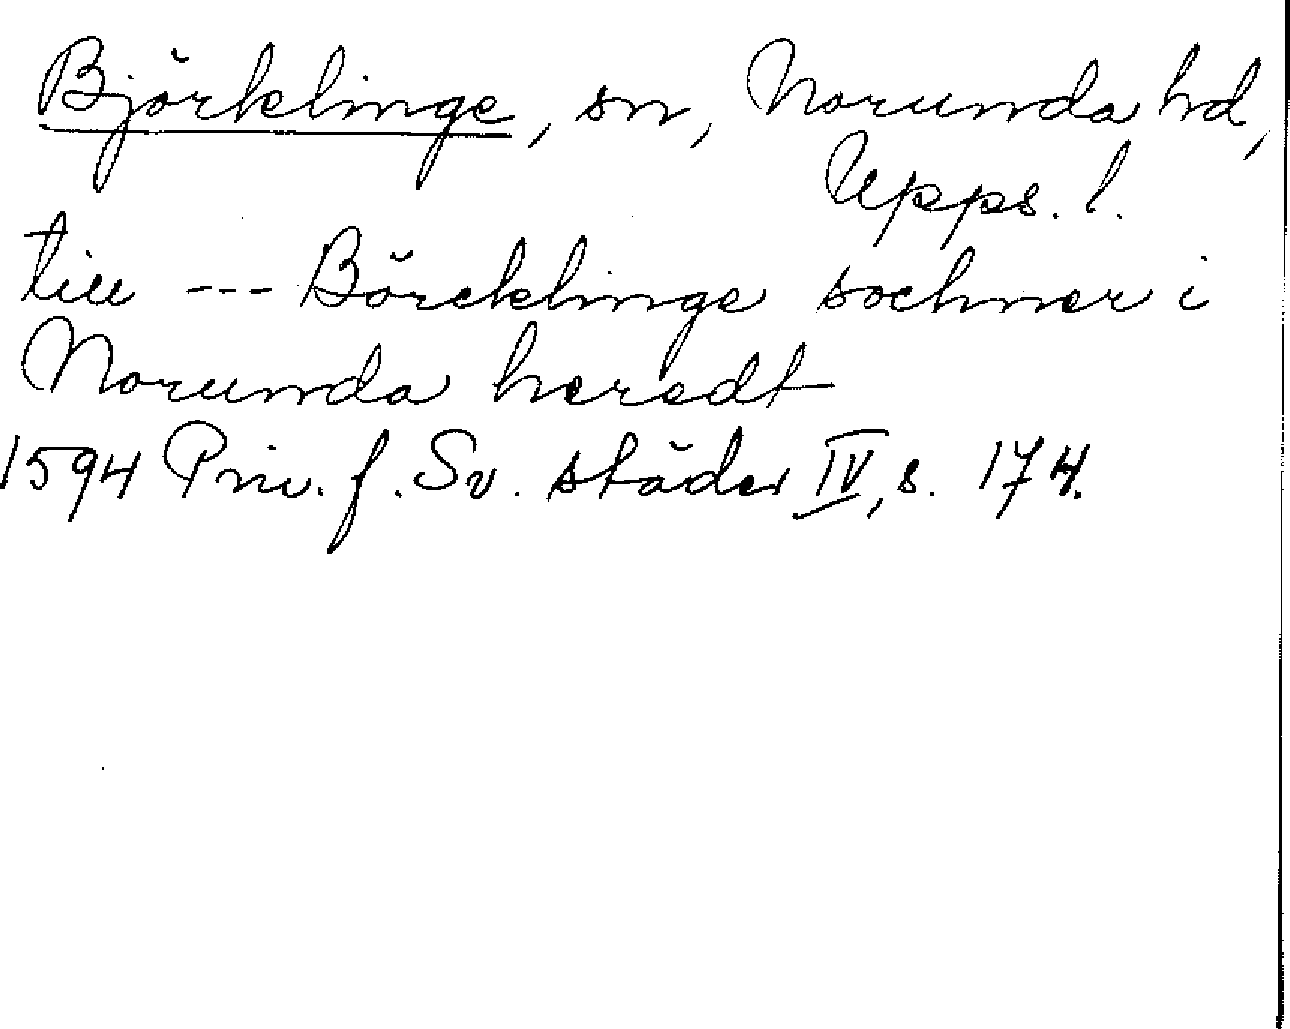 Björklinge, sn, Norunda hd,
Upps. l.
till --- Börcklinge sochner i
Norunda heredt
1594 Priv. f. Sv. städer IV, s. 174.